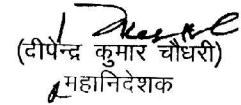 (दीपेन्द्र कुमार चौधरी)
महानिदेशक